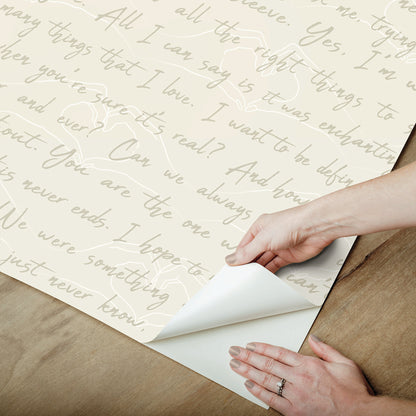 me, trying
sleeve. Yes, I'm
all the right things to
All I can say is it was enchantin
many things that I love. I want to be defin
when you're sure it's real? And how
and ever? Can we always
bout. You are the one w
is never ends. I hope to
We were something
just never know,